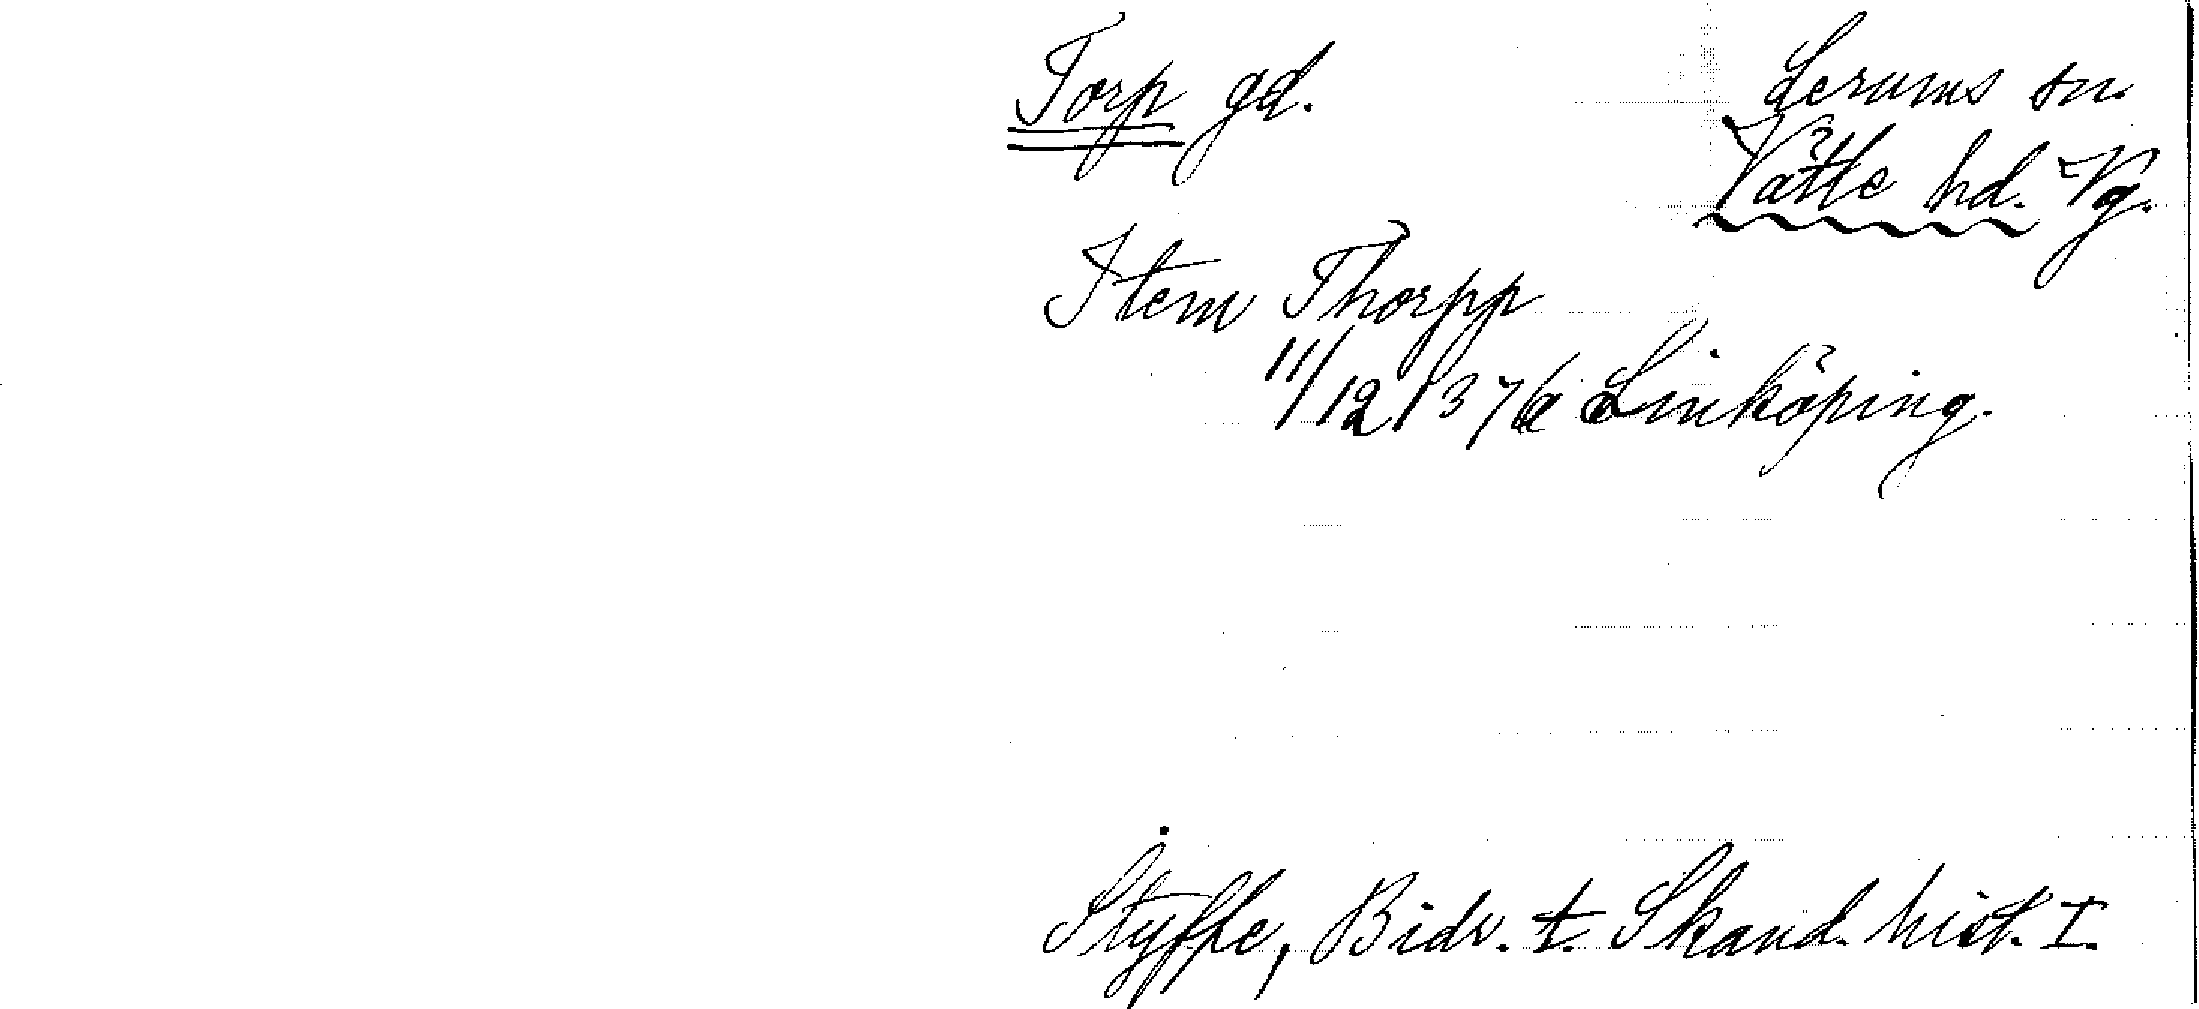 Torp gd.
Lerums sn.
Vättle hd. Vg.
Item Thorpp
11/12 1376 Linköping.
Styffe, Bidr. t. Skand. hist. I.